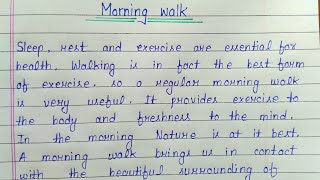 Morning walk
Sleep, rest and exercise are essential for
health. Walking is in fact the best form
of exercise. so a regular morning walk
is very useful. It provides exercise to
the body and freshness to the mind.
In the morning Nature is at it best.
A morning walk brings us in contact
with the beautiful surrounding of